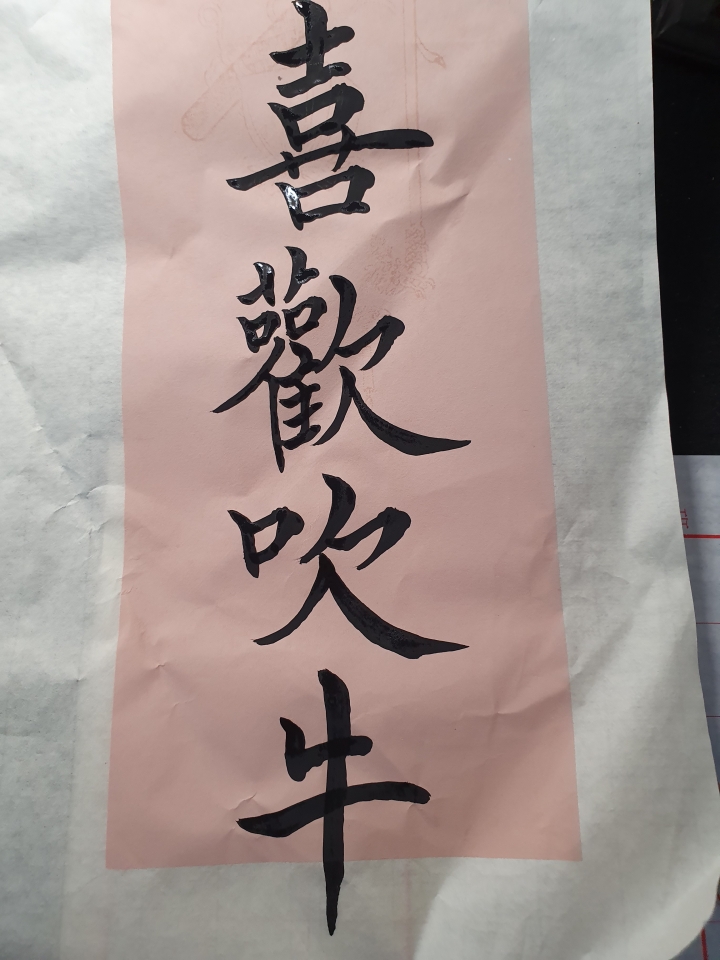 喜歡吹牛